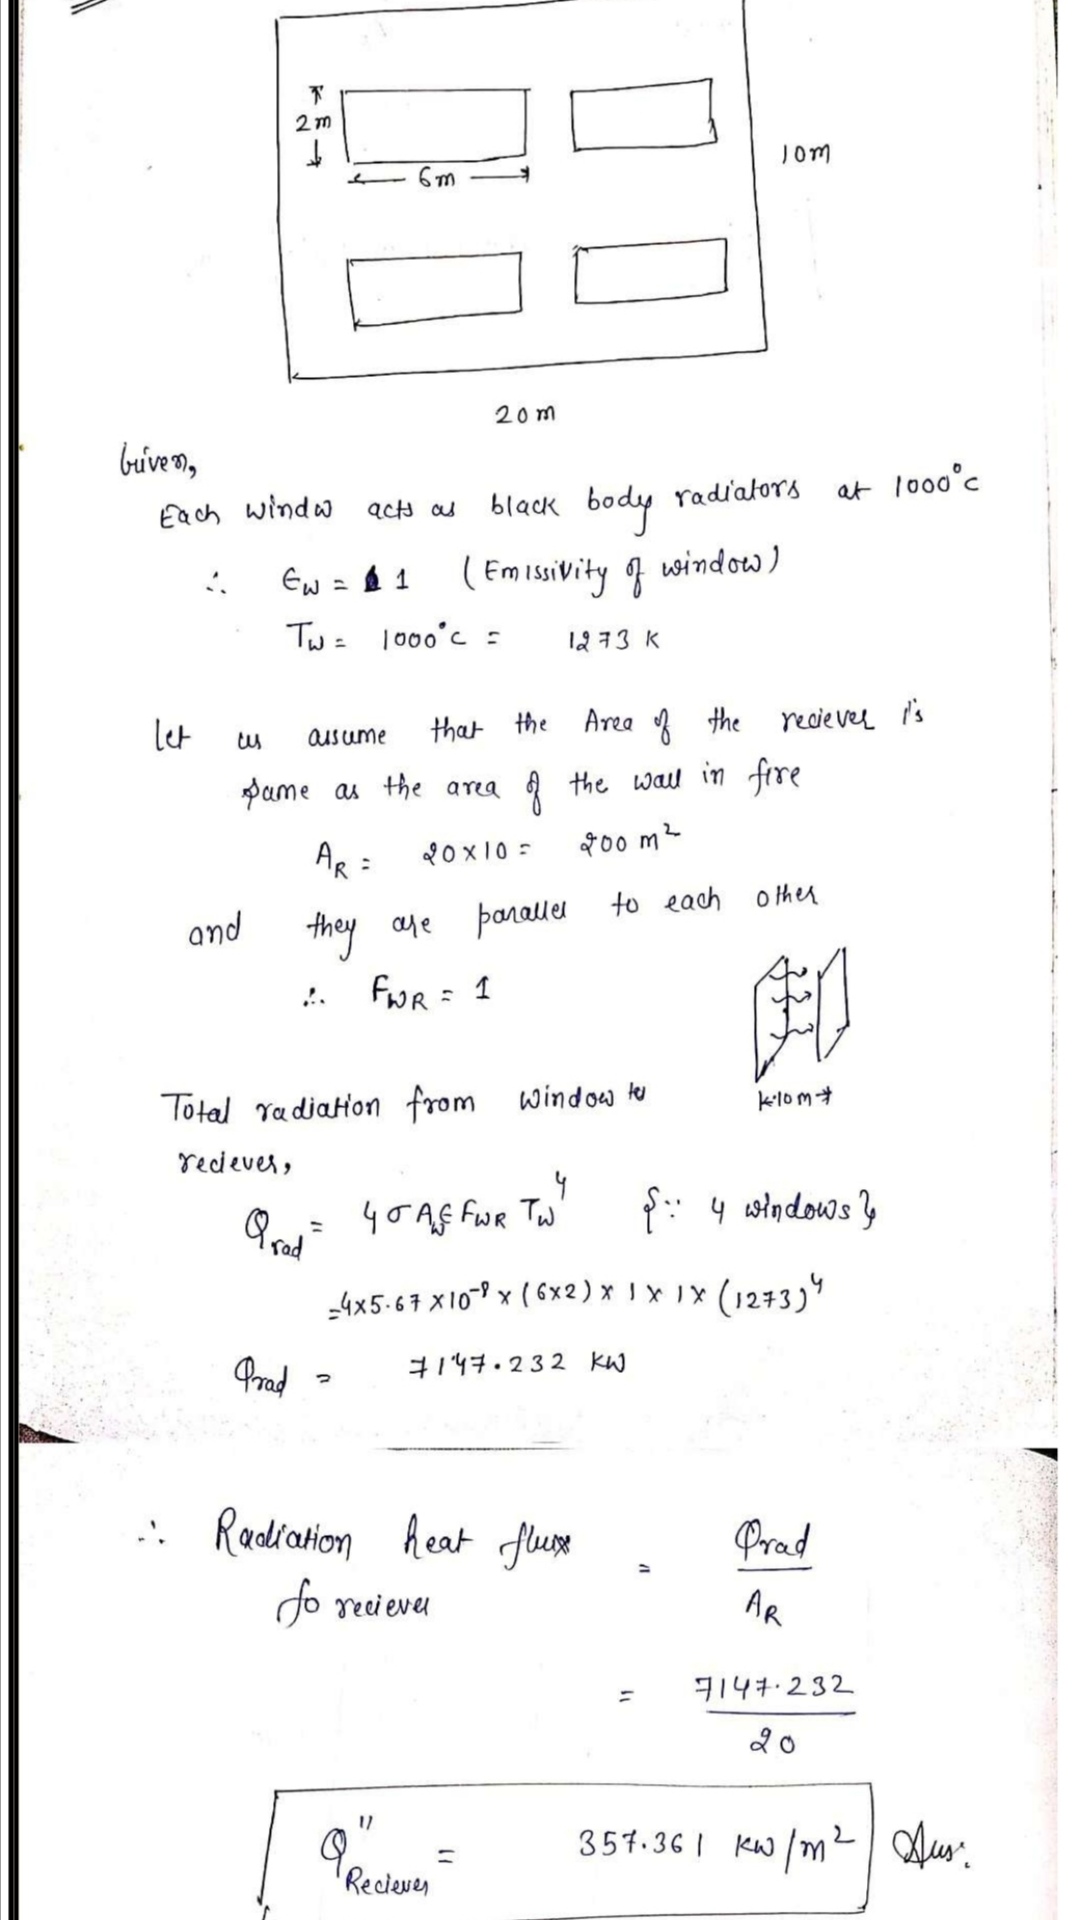 2m
6m
10m
20m
Given,
Each window acts as black body radiators at 1000°C
∴ ϵw = 1 (Emissivity of window)
Tw = 1000°C = 1273 K
Let us assume that the Area of the reciever is
same as the area of the wall in fire
AR = 20×10 = 200 m²
and they are parallel to each other
∴ FWR = 1
10m
Total radiation from window to
reciever,
Qrad = 4σAwϵFWR Tw⁴ {∵ 4 windows}
=4×5.67×10⁻⁸×(6×2)×1×1×(1273)⁴
Qrad = 7147.232 KW
∴ Radiation heat flux = Qrad
to reciever AR
= 7147.232
20
Q"Reciever = 357.361 KW/m² Ans.